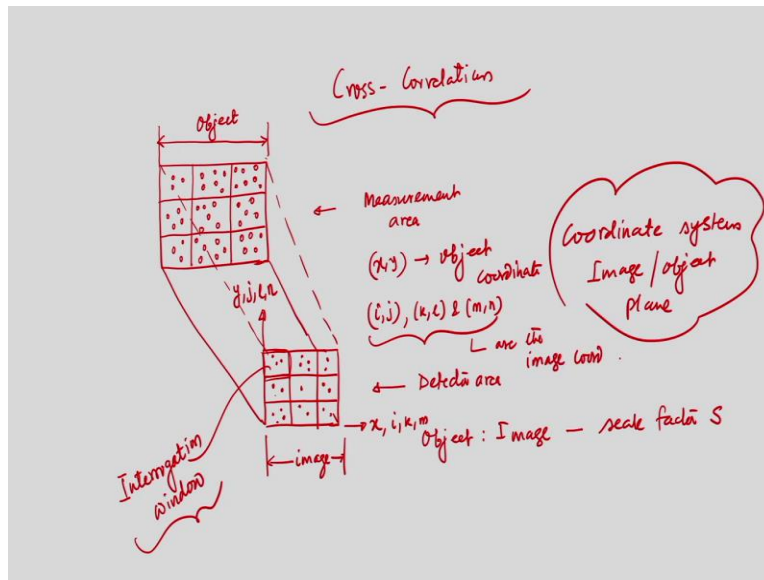 Cross-Correlation
Object
Measurement
area
(x,y) → object
coordinate
(i,j), (k,l) & (m,n)
are the
image coord.
Coordinate systems
Image/object
plane
y,j,l,n
Detector area
x, i, k, m
Object : Image — scale factor S
image
Interrogation
window